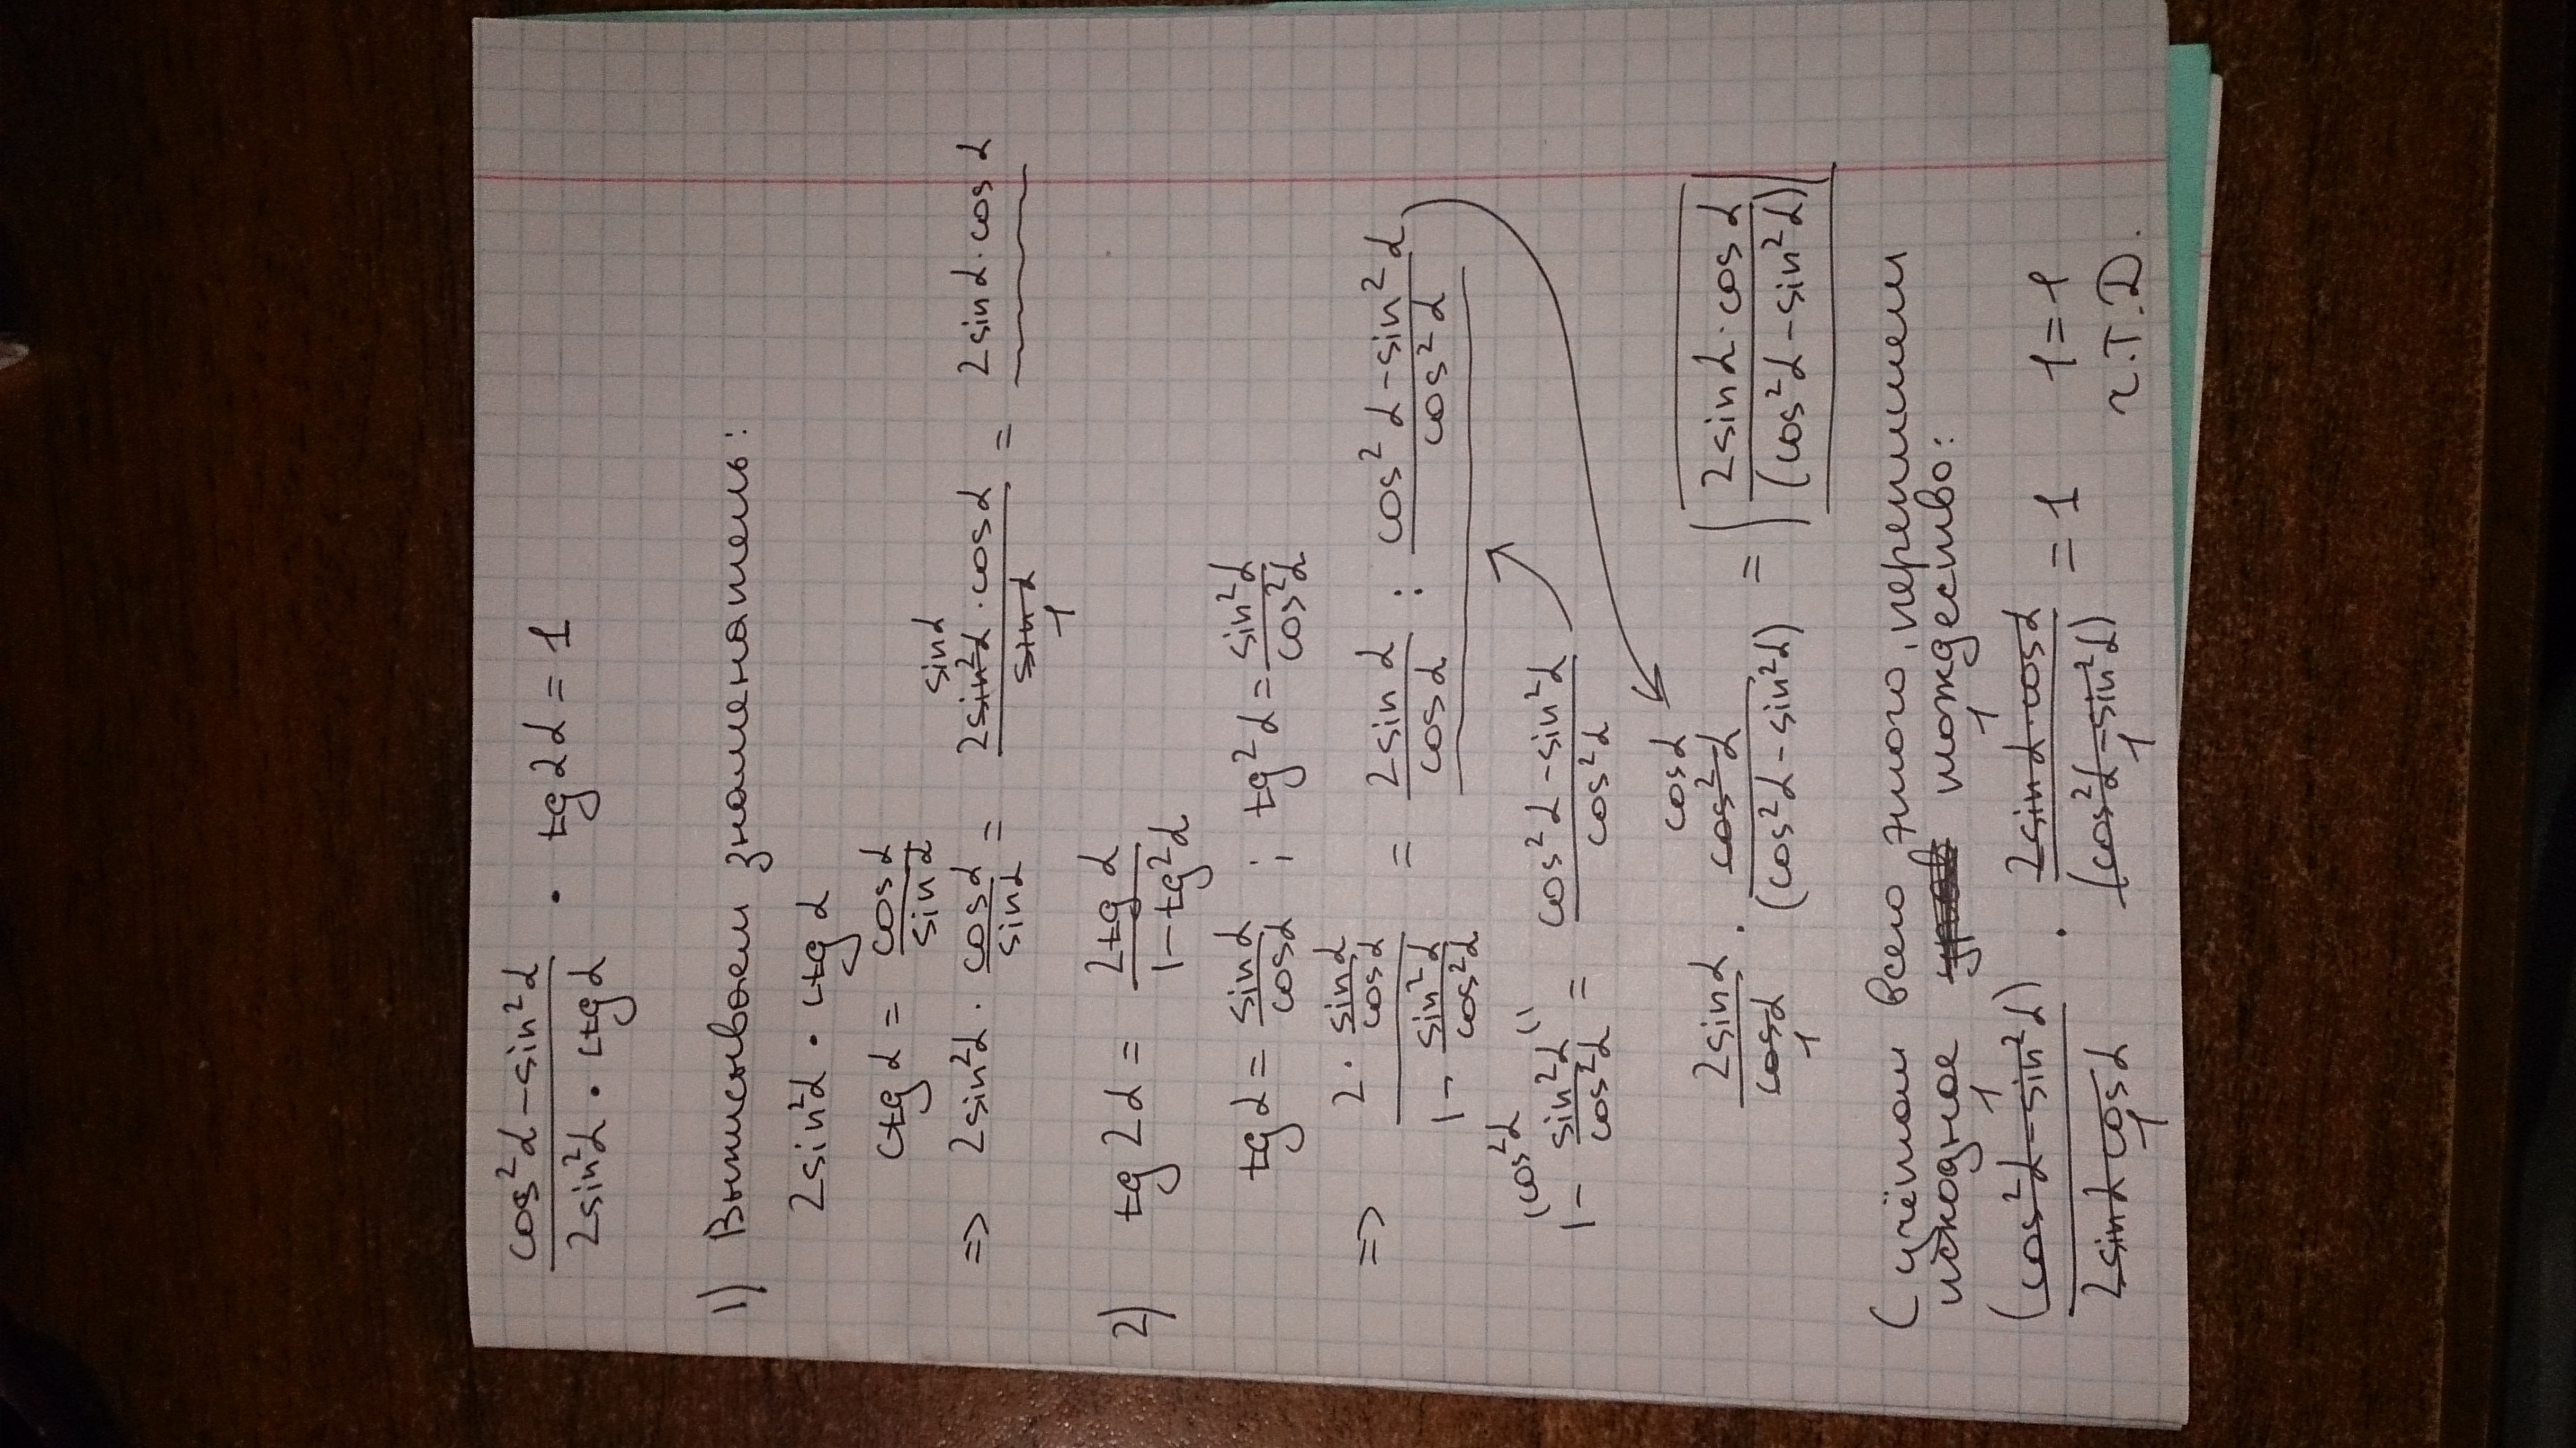 (cos²α - sin²α)/(2sin²α · ctg α) · tg 2α = 1
1) Выписываем знаменатель:
2sin²α · ctg α
ctg α = cos α/sin α
=> 2sin²α · cos α/sin α = 2sin²α · cos α/sin α = 2sin α · cos α
sin α
1
2) tg 2α = 2tg α/(1 - tg²α)
tg α = sin α/cos α ; tg²α = sin²α/cos²α
=> (2 · sin α/cos α)/(1 - sin²α/cos²α) = 2sin α/cos α : (cos²α - sin²α)/cos²α
(cos²α (1
1 - sin²α/cos²α = (cos²α - sin²α)/cos²α
cos α
2sin α/cos α · cos²α/(cos²α - sin²α) = 2sin α · cos α/(cos²α - sin²α)
1
С учётом всего этого, перепишем
исходное тождество:
1 1
(cos²α - sin²α)/(2sin α cos α) · 2sin α cos α/(cos²α - sin²α) = 1 1 = 1
1 1
ч.т.д.